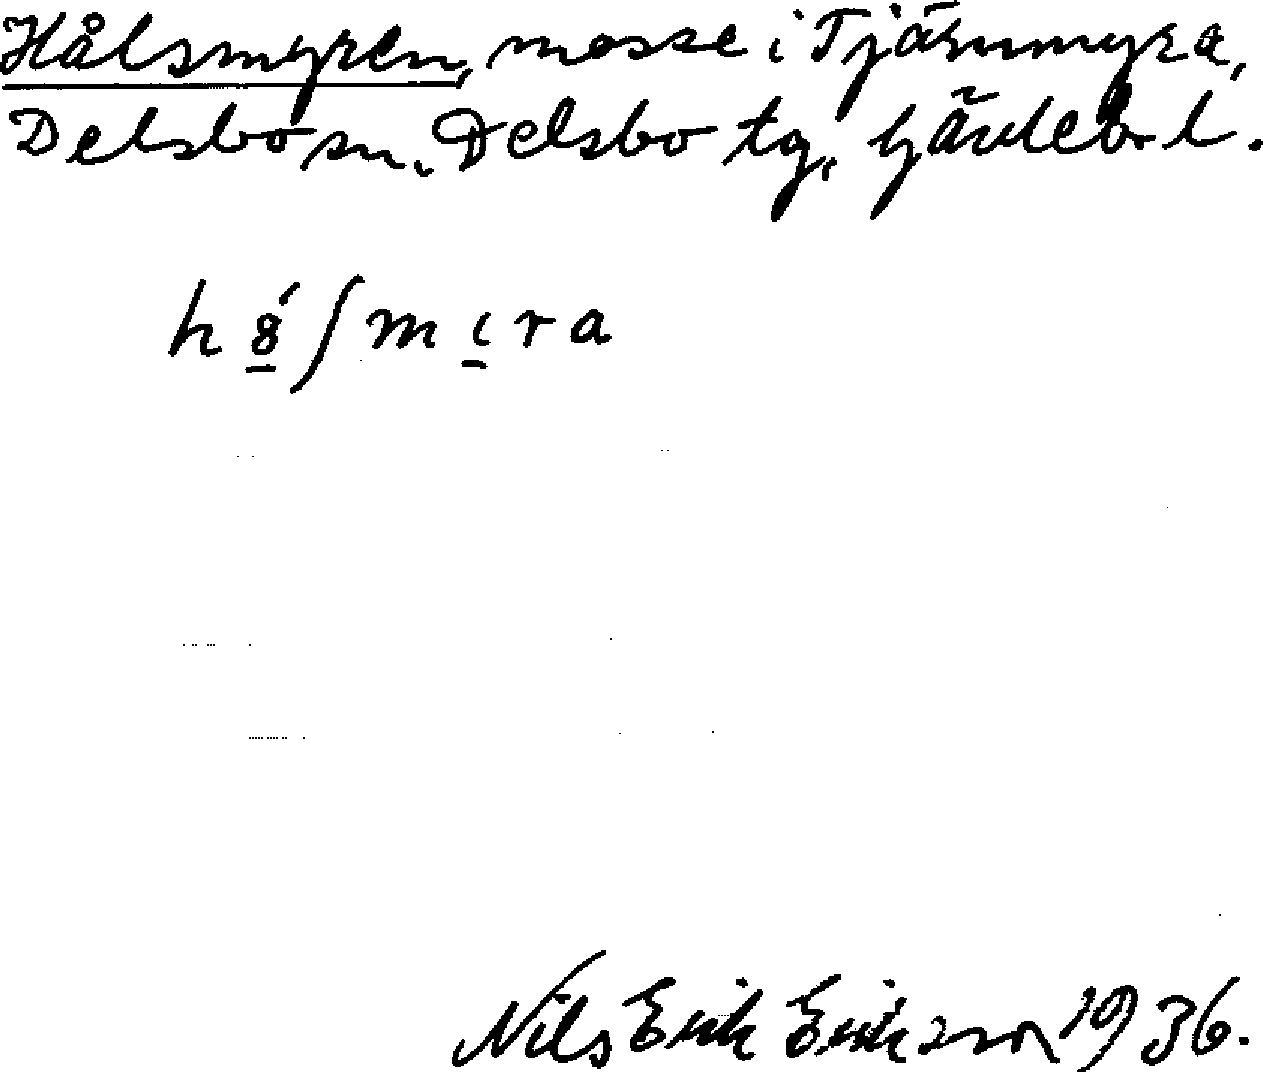 Hålsmyren, mosse i Tjärnmyra,
Delsbo sn. Delsbo tg, Gävleb. l.
hȣ́ʃmıra
Nils Erik Eriksson 1936.